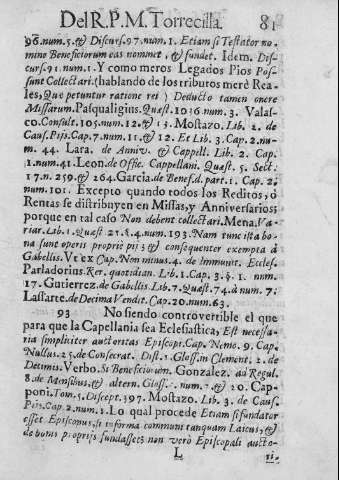 Del R.P.M. Torrecilla. 81
96. num. 5. & Discurs. 97. num. 1. Etiam si Testator no-
mine Beneficiorum eas nominet, & fundet. Idem. Dis-
curs. 91. num. 1. Y como meros Legados Pios Pos-
sunt Collectari. (hablando de los tributos merè Rea-
les, Que petuntur ratione rei) Deducto tamen onere
Missarum. Pasqualigius. Quæst. 1036. num. 3. Valas-
co. Consult. 105. num. 12. & 13. Mostazo. Lib. 2. de
Caus. Pijs. Cap. 7. num. 11. & 12. Et Lib. 3. Cap. 2. nu-
m. 44. Lara. de Anniv. & Cappell. Lib. 2. Cap.
1. num. 41. Leon. de Offic. Cappellani. Quæst. 5. Sect.
17. n. 259. & 264. Garcia. de Benef. d. part. 1. Cap. 2.
num. 101. Excepto quando todos los Reditos, ò
Rentas se distribuyen en Missas, y Anniversarios;
porque en tal caso Non debent collectari. Mena. Va-
riar. Lib. 1. Quæst. 21. §. 4. num. 193. Nam tunc ista bo-
na sunt operis proprie pij; & consequenter exempta à
Gabellis. Vt ex Cap. Non minus. 4. de Immunit. Eccles.
Parladorius. Rer. quotidian. Lib. 1. Cap. 3. §. 1. num.
17. Gutierrez. de Gabellis. Lib. 7. Quæst. 74. à num. 7.
Lassarte. de Decima Vendit. Cap. 20. num. 63.
93 No siendo controvertible el que
para que la Capellania sea Eclesiastica, Est necessa-
ria simpliciter auctoritas Episcopi. Cap. Nemo. 9. Cap.
Nullus. 25. de Consecrat. Dist. 1. Gloss. in Clement. 2. de
Decimis. Verbo. Si Beneficium. Gonzalez. ad Regul.
8. de Mensibus, & altern. Gloss. num. & 20. Cap-
poni. Tom. 5. Discept. 397. Mostazo. Lib. 3. de Caus.
Pijs. Cap. 2. num. 1. Lo qual procede Etiam si fundator
esset Episcopus, si informa communi tanquam Laicus, &
de bonis proprijs fundasset; non verò Episcopali aucto-
L ri-